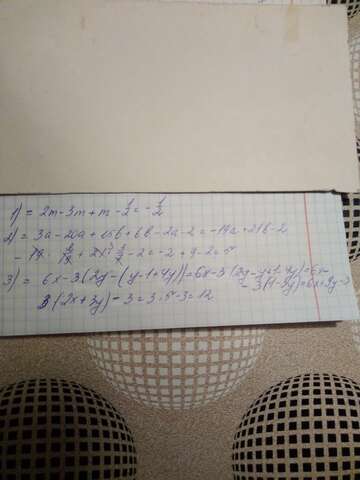 1) = 2m-3m+m-1/2=-1/2
2) = 3a-20a+15b+6b-2a-2=-19a+21b-2
-2=-2+9-2=5
3) = 6x-3(2y-(y-1+4y))=6x-3(2y-y+1-4y)=6x-
-3(1-3y)=6x+9y-3
3(2x+3y)-3=3·5-3=12